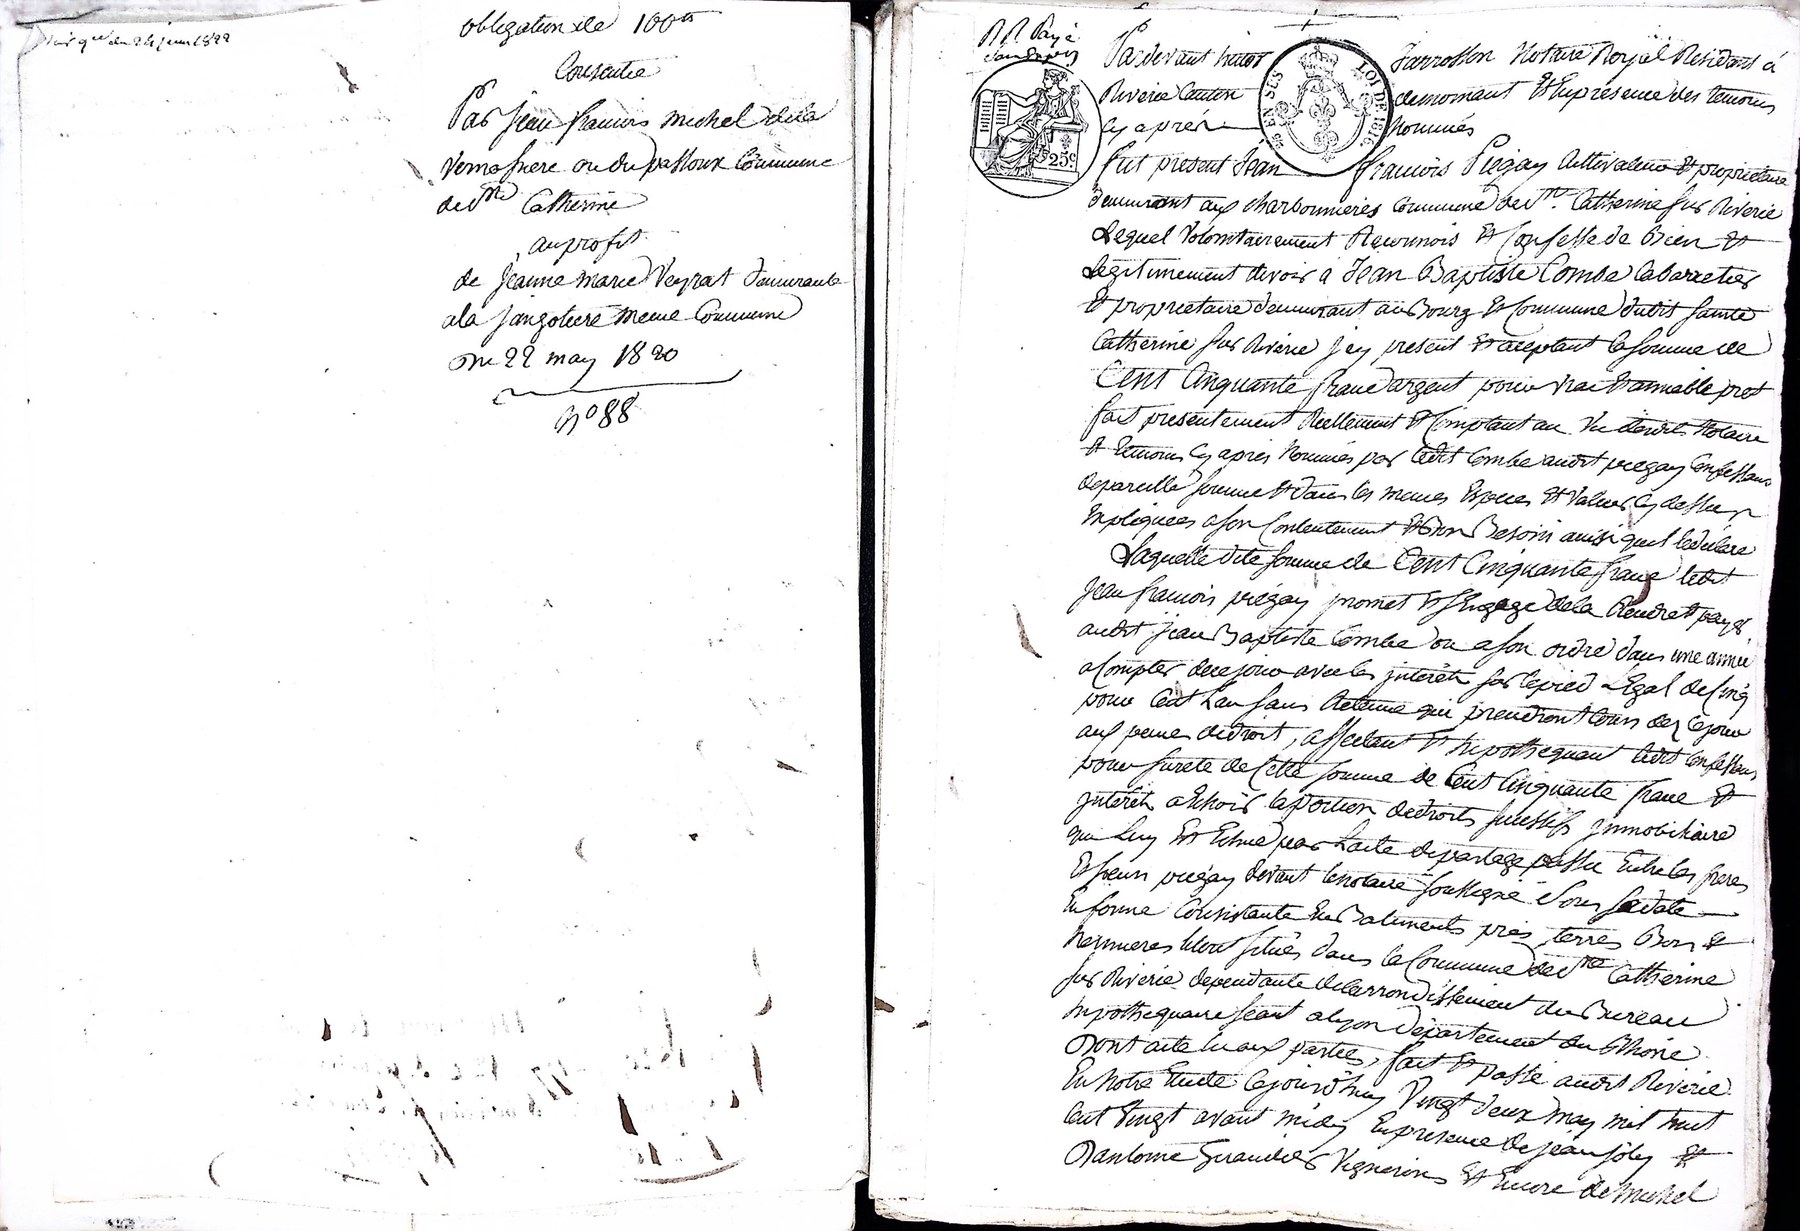 obligation de 100 ts
Consentie
Par jean francois michel dela
vernossiere ou du passoux Commune
de Ste Catherine
au profit
de jeanne marie Veyrat demeurante
ala jangotiere meme Commune
Du 22 may 1820
No 88
R R Payé
Par devant
farrosson Notaire Royal Residant á
Riverie Canton
demornant Et En presence des temoins
Cy aprés
Nommés
EN SUS
LOI DE 1816
25c
fut present Jean francois Piégay Cultivateur Et proprietaire
demeurant aux charbonnieres Commune de Ste Catherine sur Riverie
Lequel Volontairement Reconnois Et Confesse de Bien Et
Legitimement devoir á Jean Baptiste Combe Cabarretier
Et proprietaire demeurant au Bourg Et Commune dudit sainte
Catherine sur Riverie jcy present Et aceptant la somme de
Cent Cinquante franc d'argent pour vrai Et amiable pret
fait presentement Reellement Et Comptant au Vu desdits Notaire
Et temoins Cy apres Nommés par ledit Combe audit piegay Confessant
de pareille somme Et dans les memes Especes Et Valeurs Cy dessus
Expliquees a son Contentement Et son Besoin ainsi quil le declare
Laquelle dite somme de Cent Cinquante franc ledit
Jean francois piégay promet Et s'Engage de la Rendre Et payer
audit jean Baptiste Combe ou a son ordre dans une année
a Compter de ce jour avec les jnterêts sur le pied Legal de Cinq
pour Cent L'an sans Retenue qui prendront Cours dez Ce jour
aux peines de droit, affectant Et hipothequant ledit Confessant
pour sureté de Cette somme de Cent Cinquante franc Et
jnterêts a Echoir la portion de droits sucessifs jmmobiliaire
qui Luy Est Echue par L'acte de partage passé Entre les freres
Et soeurs piégay devant le notaire soussigné Sous sa date
En forme Consistante En Batiments près terres Bois Et
hermieres le tout situés dans la Commune de Ste Catherine
sur Riverie dependante de l'arrondissement du Bureau
hipothequaire seant a lyon departement du Rhone
Dont acte lu aux parties, fait Et passé audit Riverie
En Notre Etude Cejourd'huy Vingt deux may mil huit
Cent Vingt avant midy En presence de jean joly Et
D'antoine Giraudier Vignerons Et Encore de michel